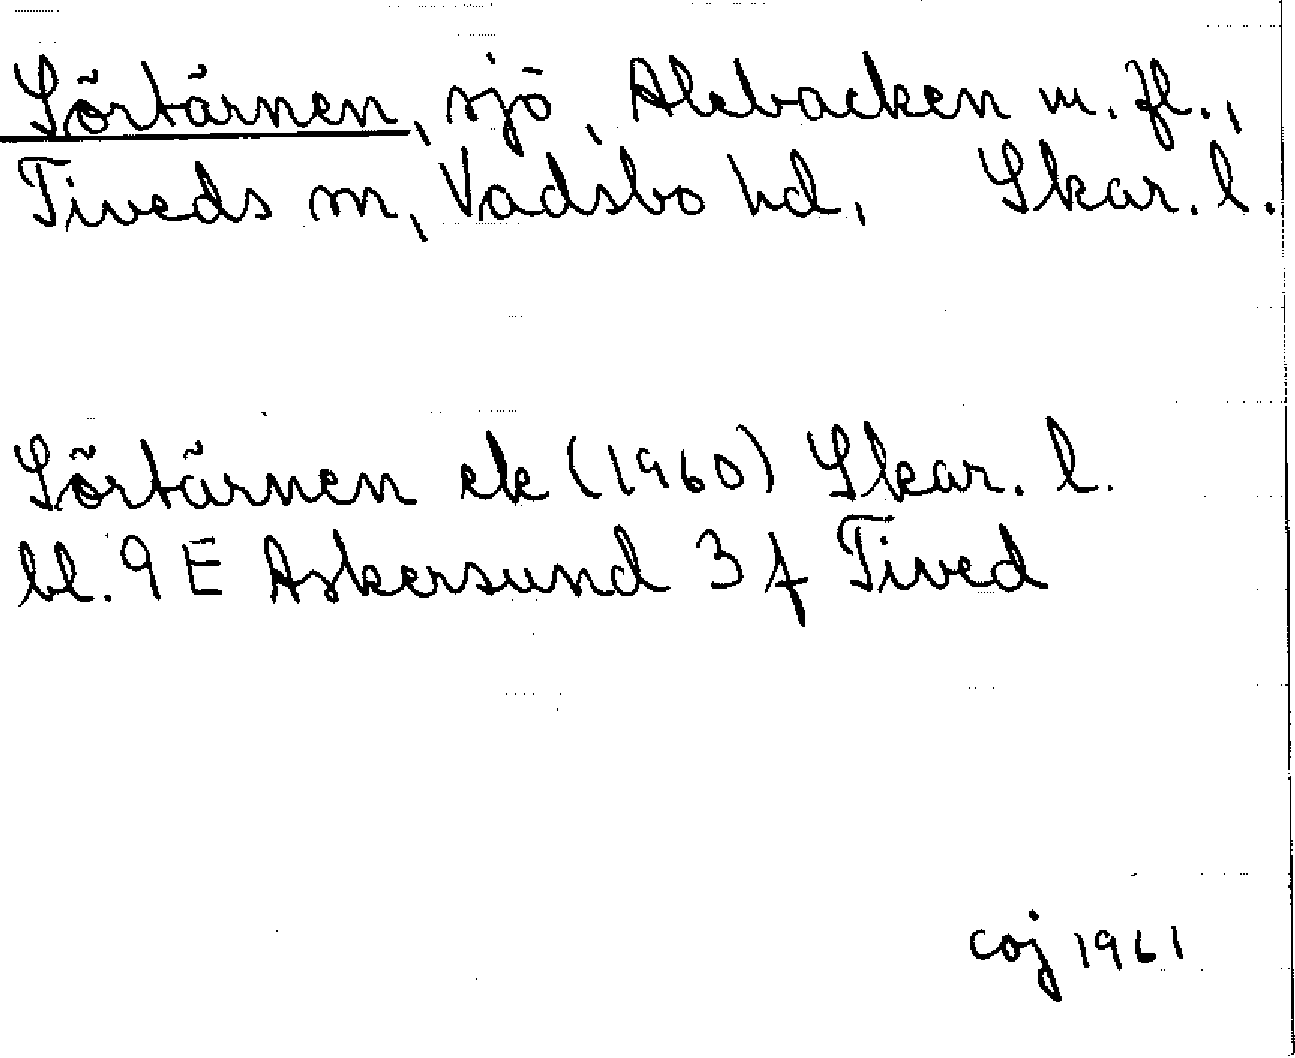 Sörtärnen, sjö, Alebacken m. fl.,
Tiveds sn, Vadsbo hd, Skar. l.
Sörtärnen ek (1960) Skar. l.
bl. 9 E Askersund 3 f Tived
coj 1961